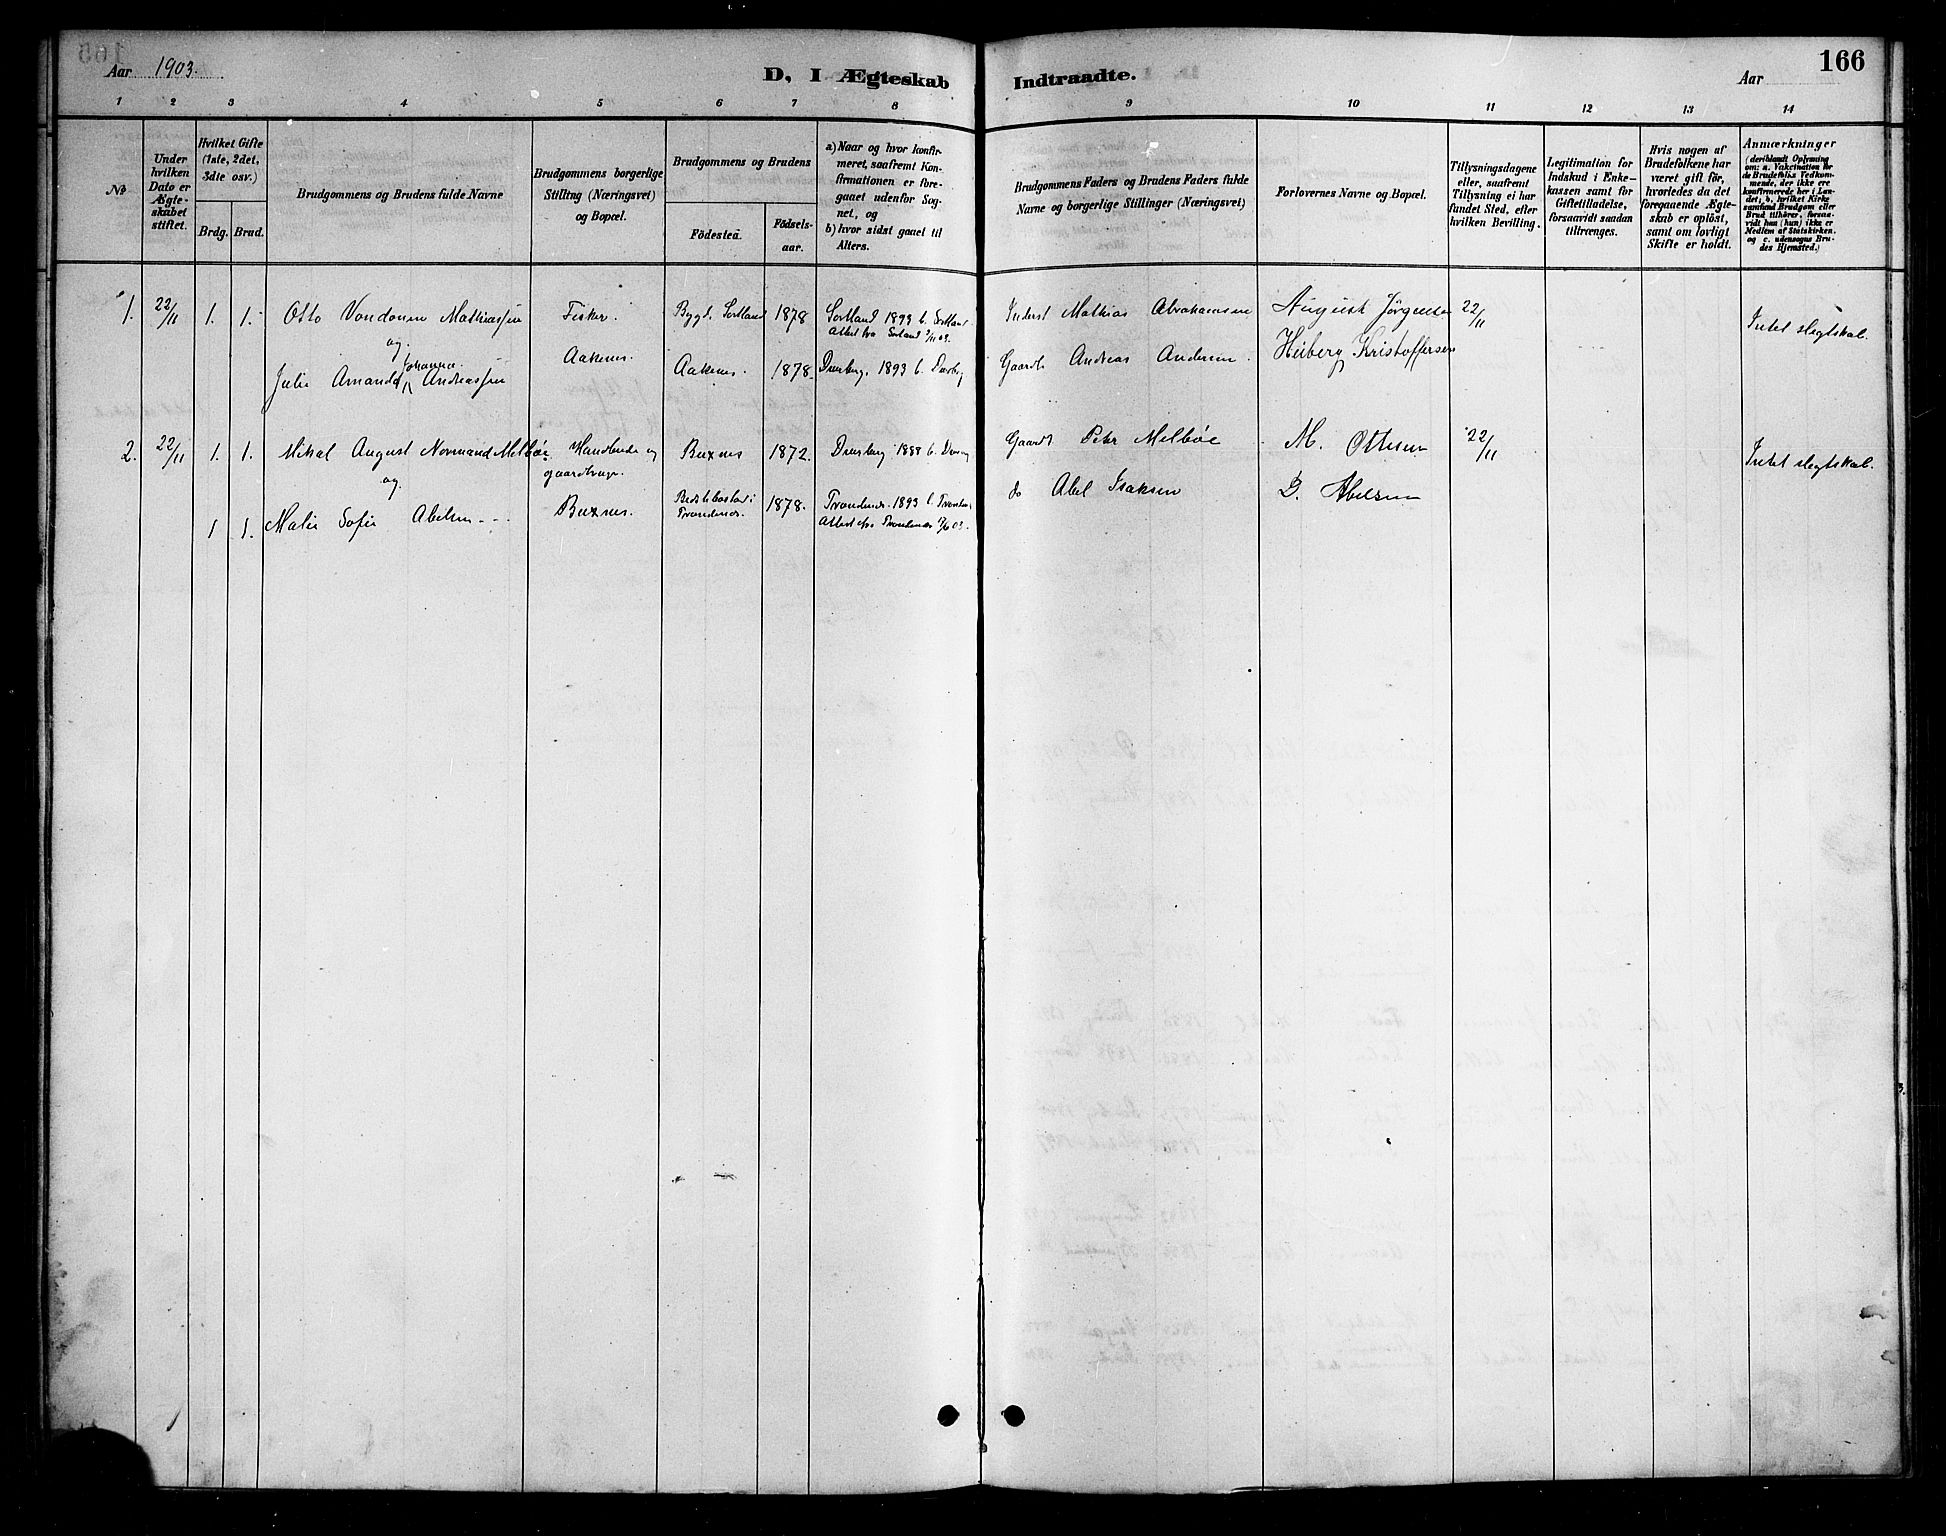 166
Aar 1903.
D, I Ægteskab Indtraadte.
Aar
1 2 3 4 5 6 7 8 9 10 11 12 13 14
No
Under hvilken Dato er Ægteskabet stiftet.
Hvilket Gifte (1ste, 2det, 3die osv.)
Brdg. Brud.
Brudgommens og Brudens fulde Navne
Brudgommens borgerlige Stilling (Næringsvei) og Bopæl.
Brudgommens og Brudens
Födested
Födselsaar.
a) Naar og hvor konfirmeret, saafremt Konfirmationen er foregaaet udenfor Sognet, og
b) hvor sidst gaaet til Alters.
Brudgommens Faders og Brudens Faders fulde Navne og borgerlige Stillinger (Næringsvei)
Forlovernes Navne og Bopæl.
Tillysningsdagene eller, saafremt Tillysning ei har fundet Sted, efter hvilken Bevilling.
Legitimation for Indskud i Enkekassen samt for Giftetilladelse, forsaavidt saadan tiltrænges.
Hvis nogen af Brudefolkene har været gift för, hvorledes da det foregaaende Ægteskab er oplöst, samt om lovligt Skifte er holdt.
Anmærkninger
(deriblandt Oplysning om: a. Vakcination for de Brudefolks Vedkommende, der ikke ere konfirmerede her i Landet; b. hvilket Kirkesamfund Brudgom eller Brud tilhörer, forsaavidt han (hun) ikke er Medlem af Statskirken. og c. udensogns Brudes Hjemsted.)
1. 22/11 1. 1. Otto Mathiassen Fisker. Bygd. Sortland 1878 Sortland 1893 b. Sortland Inderst Mathias Abrahamsen August Jörgensen 22/11 Intet slegtskab.
og Aaknes. Attest fra Sortland
Julie Amanda Johanna Andreassen Aaknes. 1878. Dverberg. 1893 b. Dverbg Gaardb Andreas Andersen. Heiberg Kristoffersen
2. 22/11 1. 1. Mikal August Normand Melböe Handlende og gaardbruger. Buxnes 1872. Dverberg 1888 b. Dverbg Gaardb Peter Melböe M. Ottesen 22/11 Intet slegtskab.
og
1 1. Malie Sofie Abelsen Buxnes. Trondenes. 1878. Trondenes. 1893 b. Trondenes do Abel Isaksen Abelsen
Attest fra Trondenes